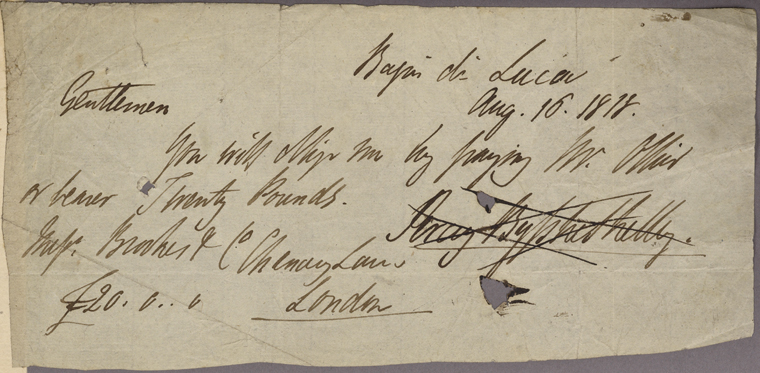 Bagni di Lucca
Aug. 16. 1818.
Gentlemen
You will oblige me by paying Mr. Ollier
or bearer Twenty Pounds.
Percy Bysshe Shelley.
Messrs. Brookes & Co Chancery Lane
£20. 0.. 0 London